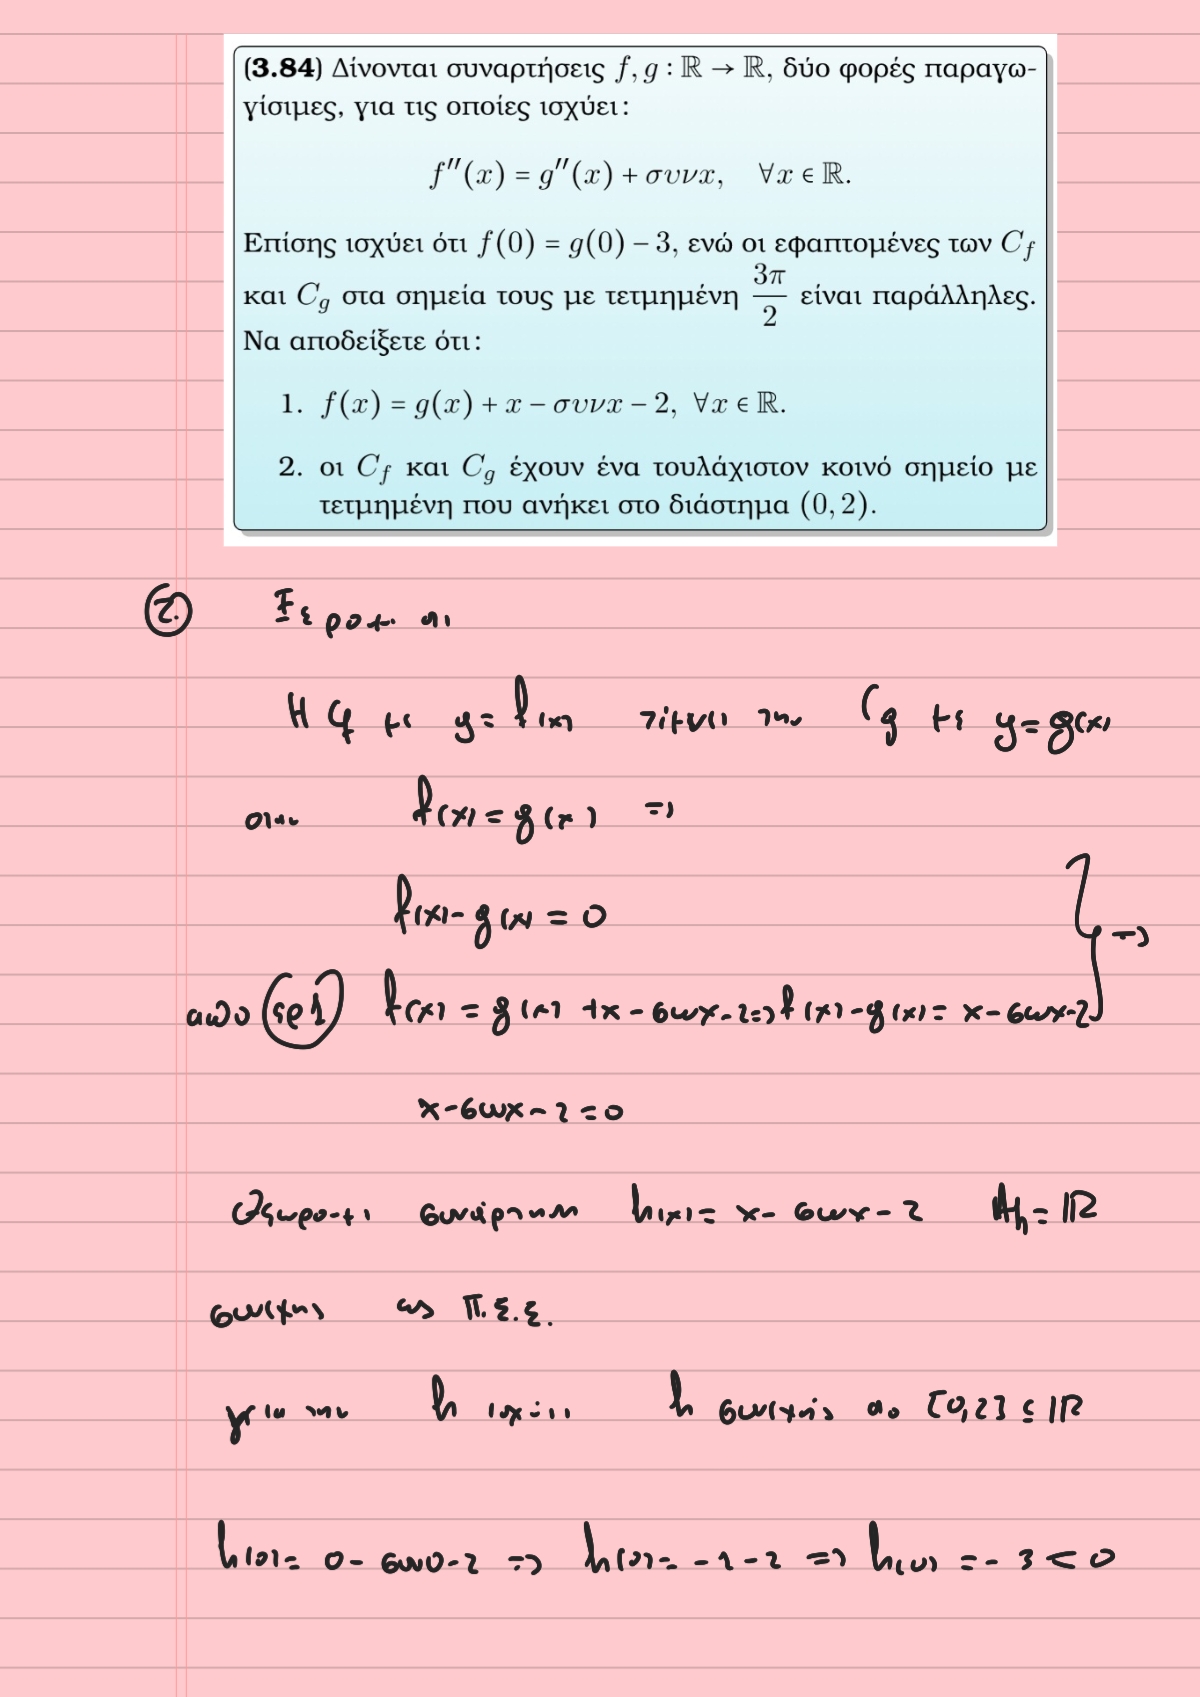 (3.84) Δίνονται συναρτήσεις f, g : ℝ → ℝ, δύο φορές παραγω-
γίσιμες, για τις οποίες ισχύει:
f′′(x) = g′′(x) + συνx, ∀x ∈ ℝ.
Επίσης ισχύει ότι f(0) = g(0) − 3, ενώ οι εφαπτομένες των C_f
και C_g στα σημεία τους με τετμημένη 3π/2 είναι παράλληλες.
Να αποδείξετε ότι:
1. f(x) = g(x) + x − συνx − 2, ∀x ∈ ℝ.
2. οι C_f και C_g έχουν ένα τουλάχιστον κοινό σημείο με
τετμημένη που ανήκει στο διάστημα (0, 2).
2. Ξερομε οτι
Η C_f με y = f(x) τέμνει την C_g με y = g(x)
οταν f(x) = g(x) ⇒
f(x) - g(x) = 0
απο (ερ1) f(x) = g(x) + x - συνx - 2 ⇒ f(x) - g(x) = x - συνx - 2 } ⇒
x - συνx - 2 = 0
Θεωρουμε συνάρτηση h(x) = x - συνx - 2 A_h = ℝ
συνεχης ως Π.Σ.Σ.
για την h ισχύει h συνεχής στο [0,2] ⊆ ℝ
h(0) = 0 - συν0 - 2 ⇒ h(0) = -1 - 2 ⇒ h(0) = -3 < 0